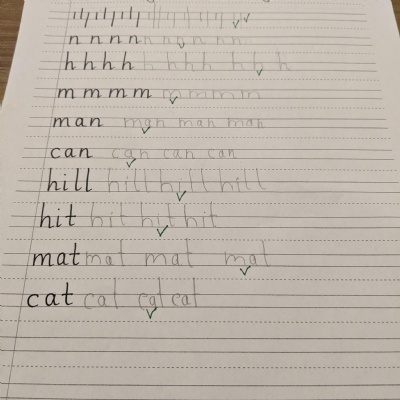 n n n n n n n n n
h h h h h h h h h h h
m m m m m m m m m
man man man man
can can can can
hill hill hill hill
hit hit hit hit
mat mat mat mat
cat cat cat cat